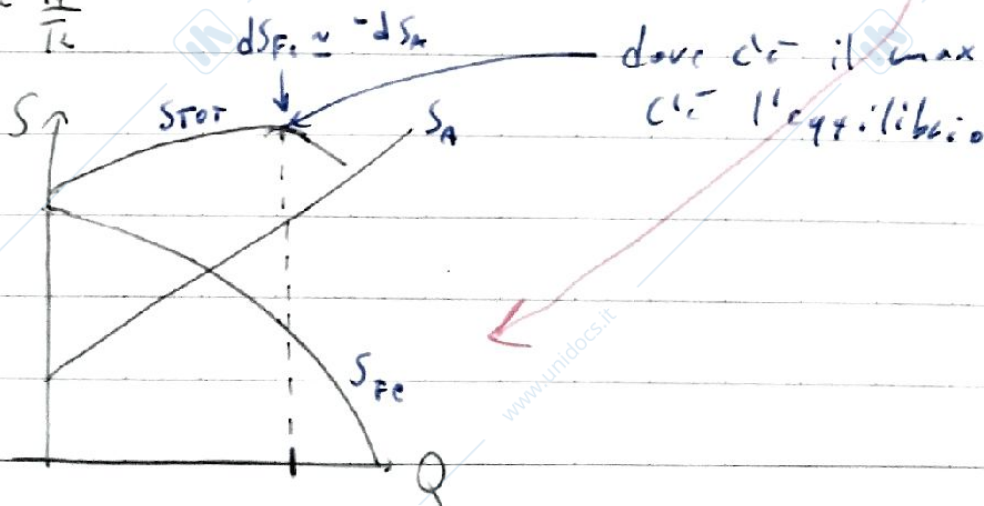 dS_Fe ≃ -dS_A
dove c'è il max
c'è l'equilibrio
S
STOT
S_A
S_Fe
Q
www.unidocs.it